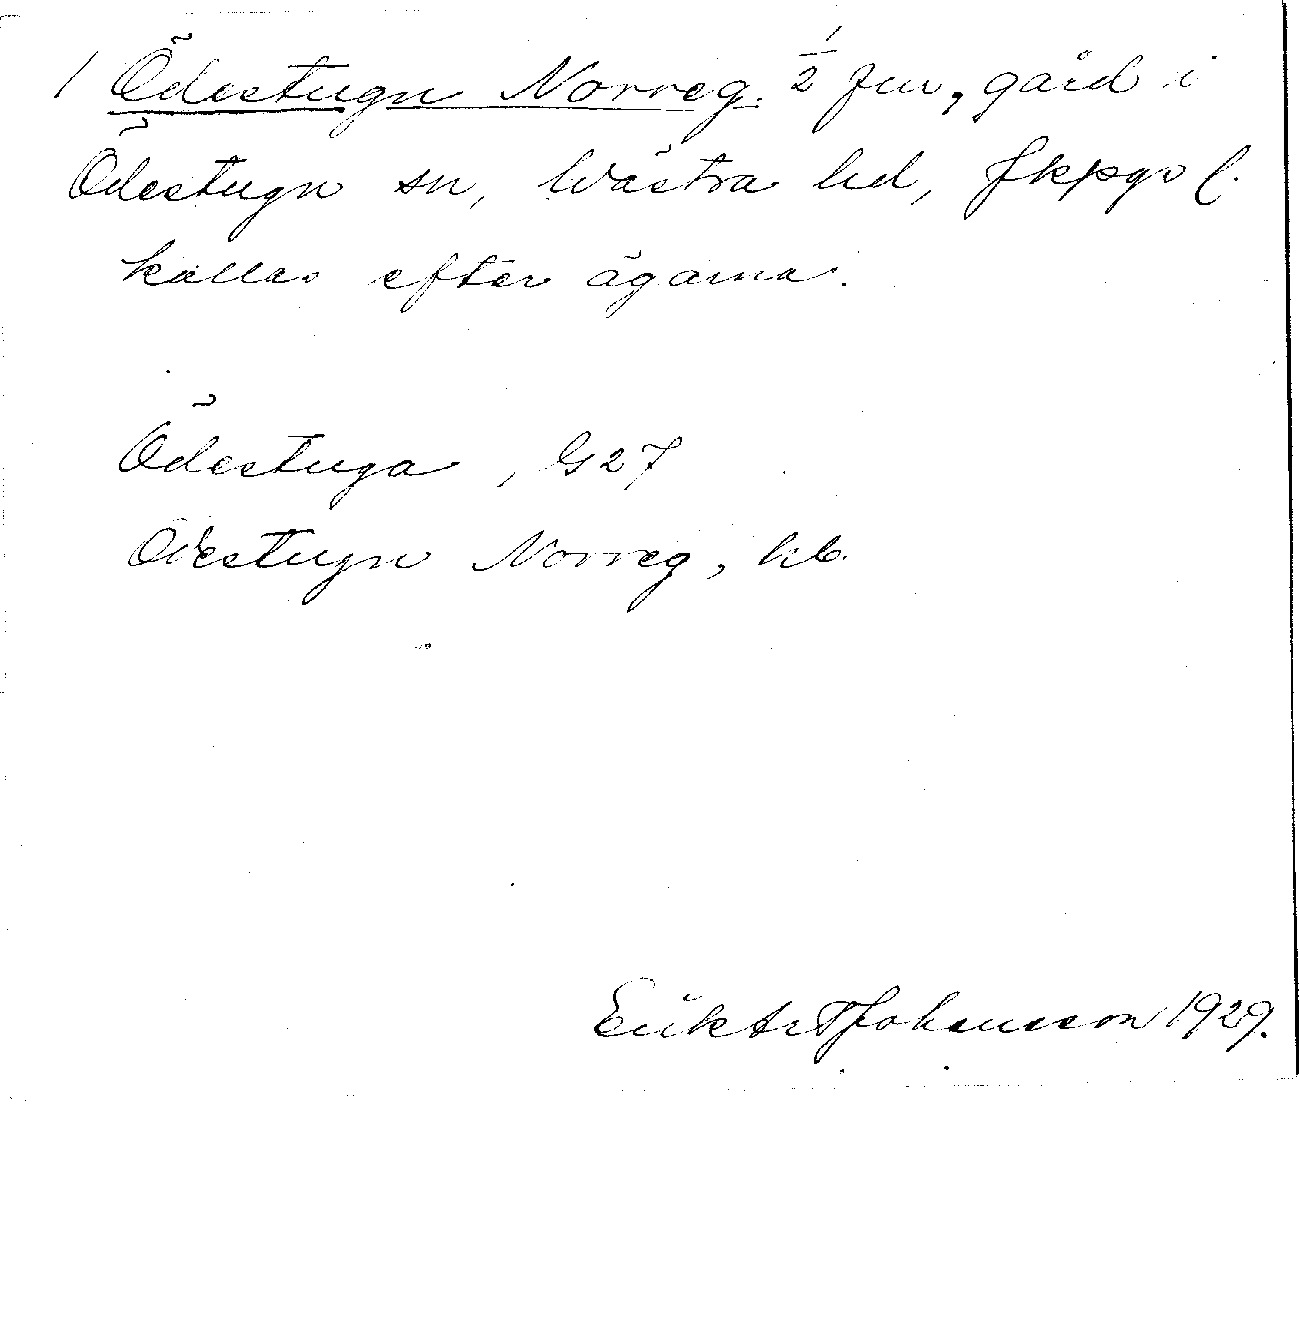 / Ödestugu Norreg. 1/2 jur, gård i
Ödestugu sn, Wästra hd, Jkpgs l.
kallas efter ägarna.
Ödestuga, G27
Ödestugu Norreg, kb.
Johansson 1929.